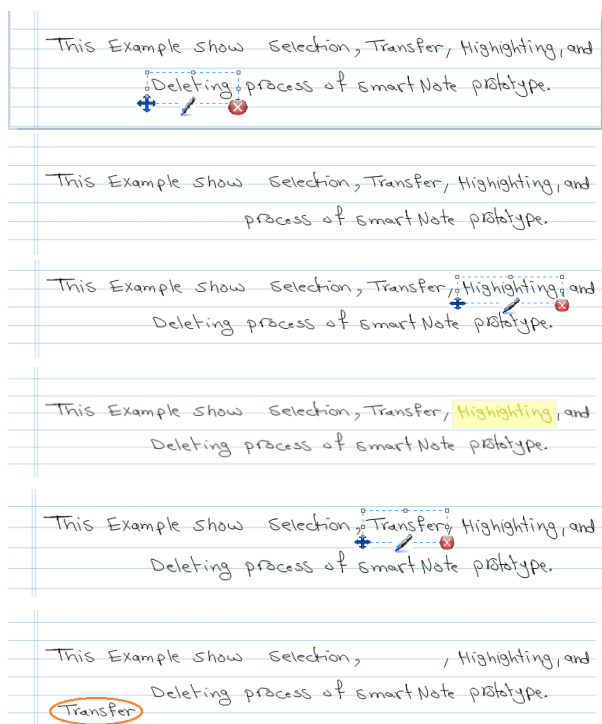 This Example show Selection, Transfer, Highighting, and
Deleting process of smart Note prototype.
This Example show Selection, Transfer, Highighting, and
process of smart Note prototype.
This Example show Selection, Transfer, Highighting, and
Deleting process of smart Note prototype.
This Example show Selection, Transfer, Highighting, and
Deleting process of smart Note prototype.
This Example show Selection, Transfer, Highighting, and
Deleting process of smart Note prototype.
This Example show Selection, , Highighting, and
Deleting process of smart Note prototype.
Transfer